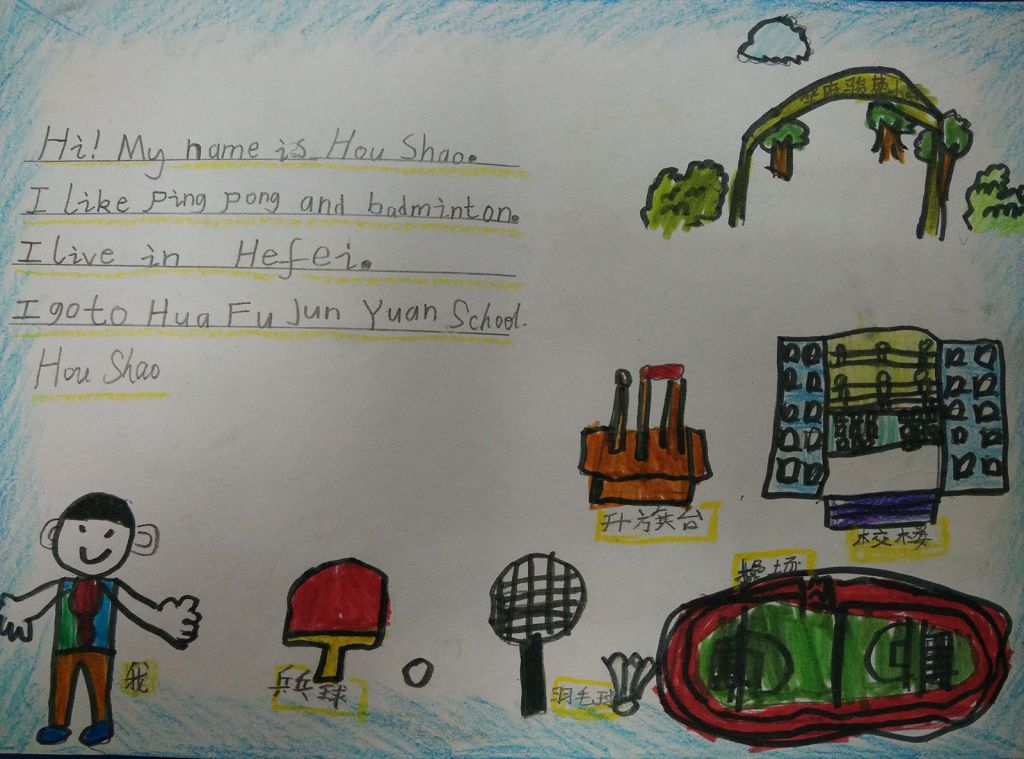 Hi! My name is Hou Shao.
I like ping pong and badminton.
I live in Hefei.
I go to Hua Fu Jun Yuan School.
Hou Shao
升旗台
校楼
操场
我
乒乓球
羽毛球